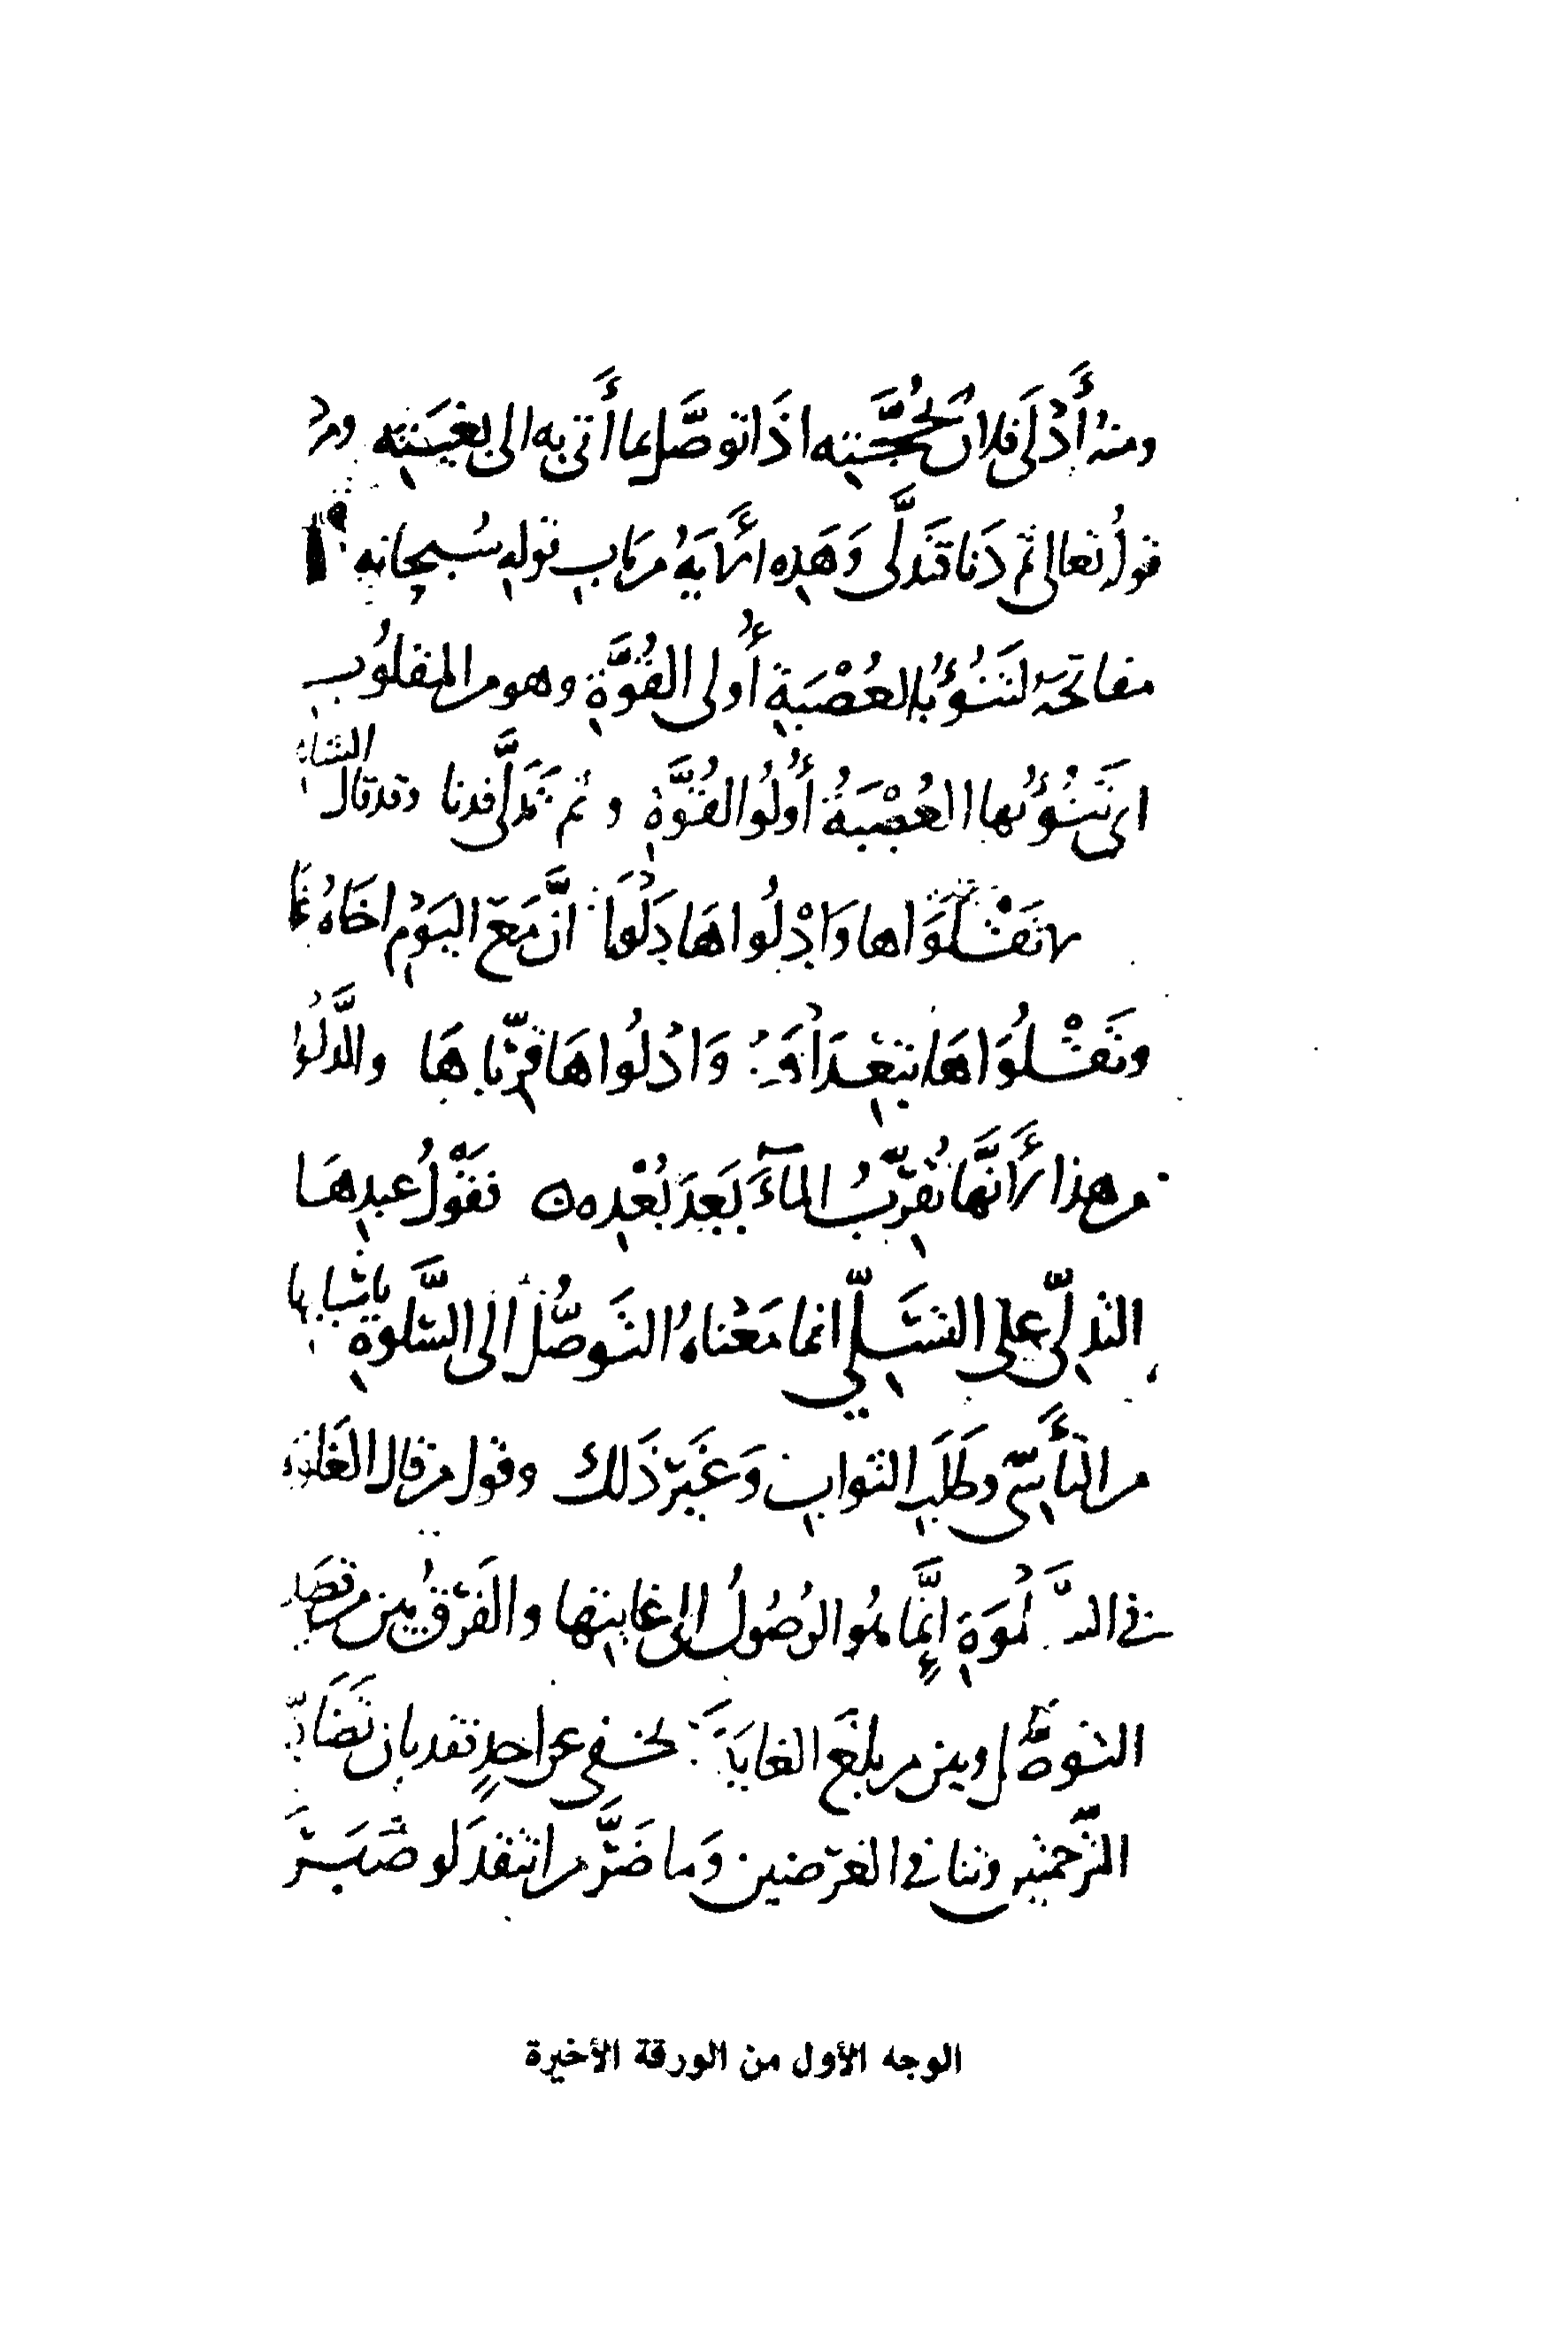 ومنه أَدْلَى فلانٌ بحُجَّتِه اذَا توصَّل بما أَتى به الى بغيَتِه ومنه
قولُه تعالى ثم دَنا فتَدَلَّى وَهَذِه الآيَةُ من بابِ قولِه سُبحانه
مفاتحَه لَتَنُوءُ بالعُصْبَةِ أُولى القُوَّةِ وهو من المقلوُبِ
اى تَنُوءُ بها العُصْبَةُ أُولُوا القُوَّةِ و ثم تَدَلَّى فدنا وقد قال الشاعر
لا تَقْلُوَاها وَادْلُواهَا دَلْوَا انَّ مَعَ اليَوْمِ اخَاهُ غَدْوَا
وتَقْلُوَاهَا تبْعِدَاهَا وَادْلُواهَا قَرِّباهَا والدَّلْوُ
من هذا لأَنَّها تُقرِّبُ المآءَ بَعدَ بُعْدِه فقَوْلُ عبدِهَا
التدلِّى على التسَلِّي انما مَعْناهُ التَوصُّل الى السَّلوةِ باسبابها
من التأَسِّى وطلَبِ الثوابِ وَغَيْرِ ذَلك وقول من قال الغَلوَّ
فى السَّلْوَةِ إِنَّما هُو الوُصُولُ الى غايتِها والفَرْقُ بين من قصَد
التوصُّل وبين من بلَغَ الغايَةَ لا يخفى عن احدٍ فقد بان تَضَادُّ
الترجمتين وتنافى الغرَضين وَما ضَرَّ من انتقدَ لو صَبَرَ
الوجه الأول من الورقة الأخيرة